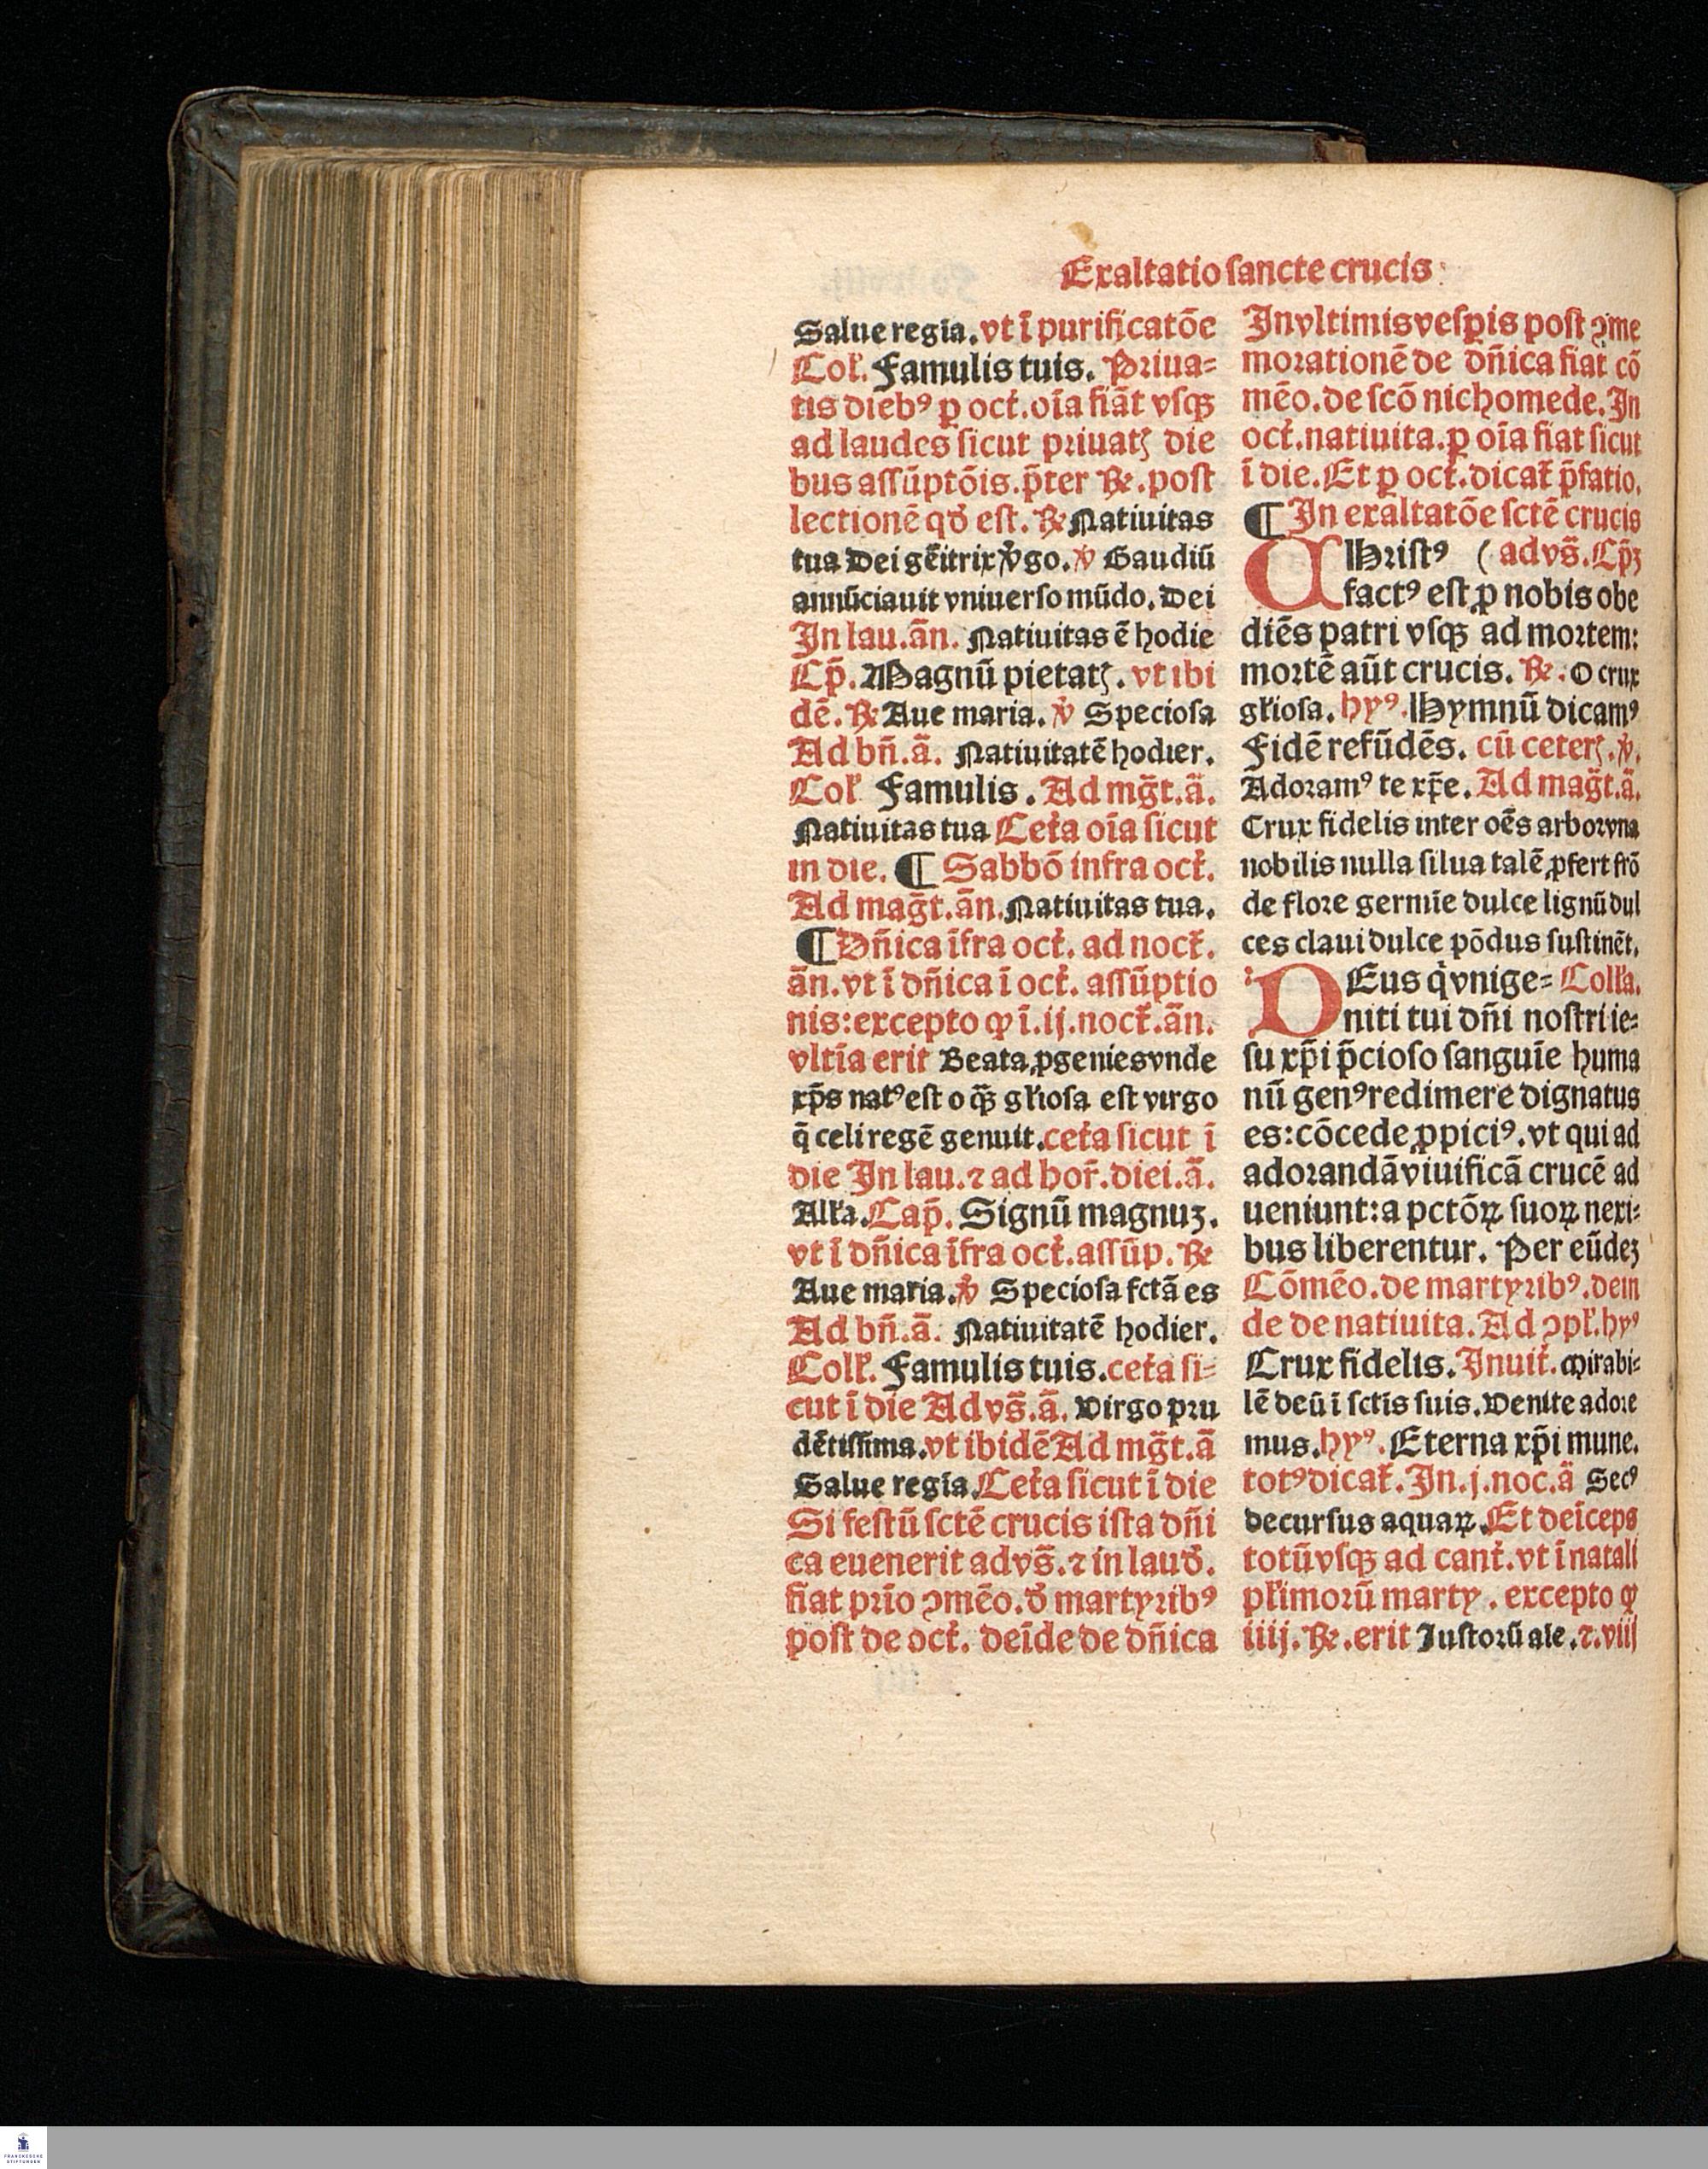 Exaltatio ſancte crucis
Salue regia. vt ī purificatōe
Col̄. Famulis tuis. Priua⸗
tis diebꝰ ꝑ oct̄. oīa fiāt vſqꝫ
ad laudes ſicut priuatꝫ die
bus aſſūptōis. p̄ter ℞. poſt
lectionē qđ eſt. ℞ Natiuitas
tua Dei gēitrix v̄go. ℣ Gaudiū
annūciauit vniuerſo mūdo. Dei
In lau. ān. Natiuitas ē hodie
Cp̄. Magnū pietatꝫ. vt ibi
dē. ℞ Aue maria. ℣ Specioſa
Ad bn̄. ā. Natiuitatē hodier.
Col̄ Famulis. Ad mḡt. ā.
Natiuitas tua Cet̄a oīa ſicut
in die. ¶ Sabbō infra oct̄.
Ad maḡt. ān. Natiuitas tua.
¶ Dn̄ica īfra oct̄. ad noct̄.
ān. vt ī dn̄ica ī oct̄. aſſūptio
nis: excepto ꝙ ī. ij. noct̄. ān.
vltīa erit Beata ꝓgenies vnde
xp̄s natꝰ eſt o qꝫ̄ gl̄ioſa eſt virgo
q̄ celi regē genuit. cet̄a ſicut ī
die In lau. ⁊ ad hor̄. diei. ā.
All̄a. Cap̄. Signū magnuꝫ.
vt ī dn̄ica īfra oct̄. aſſūp. ℞
Aue maria. ℣ Specioſa fctā es
Ad bn̄. ā. Natiuitatē hodier.
Coll̄. Famulis tuis. cet̄a ſi⸗
cut ī die Ad vs̄. ā. Virgo pru
dētiſſima. vt ibidē Ad mḡt. ā
Salue regia. Cet̄a ſicut ī die
Si feſtū ſctē crucis iſta dn̄i
ca euenerit ad vs̄. ⁊ in lauđ.
fiat prīo ꝯmēo. đ martyribꝰ
poſt de oct̄. deīde de dn̄ica
In vltimis veſꝑis poſt ꝯme
morationē de dn̄ica fiat cō
mēo. de ſcō nichomede. In
oct̄. natiuita. ꝑ oīa fiat ſicut
ī die. Et ꝑ oct̄. dicat̄ p̄fatio.
¶ In exaltatōe ſctē crucis
CHriſtꝰ ( ad vs̄. Cp̄ꝫ
factꝰ eſt ꝓ nobis obe
diēs patri vſqꝫ ad mortem:
mortē aūt crucis. ℞. O crux
gl̄ioſa. hyꝰ. Hymnū dicamꝰ
Fidē refūdēs. cū ceterꝫ. ℣.
Adoramꝰ te xp̄e. Ad maḡt. ā.
Crux fidelis inter oēs arbor vna
nobilis nulla ſilua talē ꝓfert frō
de flore germīe dulce lignū dul
ces claui dulce pōdus ſuſtinēt.
DEus q̇ vnige⸗ Coll̄a.
niti tui dn̄i noſtri ie⸗
ſu xp̄i p̄cioſo ſanguīe huma
nū genꝰ redimere dignatus
es: cōcede ꝓpiciꝰ. vt qui ad
adorandā viuificā crucē ad
ueniunt: a pctōꝝ ſuoꝝ nexi⸗
bus liberentur. Per eūdeꝫ
Cōmēo. de martyribꝰ. dein
de de natiuita. Ad ꝯpl̄. hyꝰ
Crux fidelis. Inuit̄. Mirabi⸗
lē deū ī ſctīs ſuis. Venite adore
mus. hyꝰ. Eterna xp̄i mune.
totꝰ dicat̄. In. j. noc. ā Secꝰ
decurſus aquaꝝ. Et deīceps
totū vſqꝫ ad cant̄. vt ī natali
pl̄imorū marty. excepto ꝙ
iiij. ℞. erit Iuſtorū ale. ⁊. viij